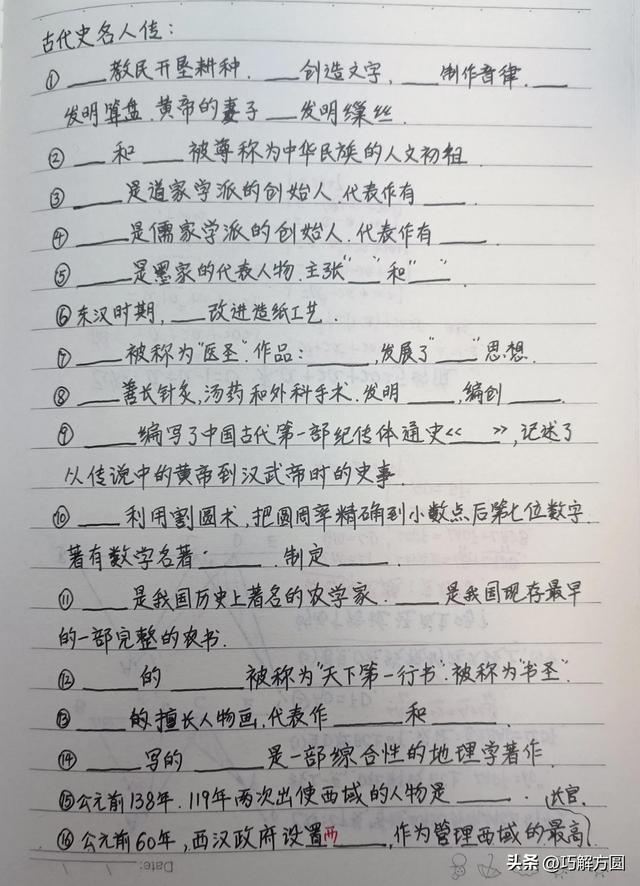 古代史名人传:
① ____教民开垦耕种. ____创造文字, ____制作音律. ____
发明算盘. 黄帝的妻子____发明缫丝
② ____和____被尊称为中华民族的人文初祖.
③ ____是道家学派的创始人. 代表作有____.
④ ____是儒家学派的创始人. 代表作有____.
⑤ ____是墨家的代表人物. 主张"____"和"____".
⑥ 东汉时期, ____改进造纸工艺.
⑦ ____被称为"医圣". 作品: ____, 发展了"____"思想.
⑧ ____善长针灸, 汤药和外科手术. 发明____, 编创____.
⑨ ____编写了中国古代第一部纪传体通史《____》, 记述了
从传说中的黄帝到汉武帝时的史事.
⑩ ____利用割圆术, 把圆周率精确到小数点后第七位数字.
著有数学名著: ____. 制定____.
⑪ ____是我国历史上著名的农学家. ____是我国现存最早
的一部完整的农书.
⑫ ____的____被称为"天下第一行书". 被称为"书圣".
⑬ ____的擅长人物画. 代表作____和____.
⑭ ____写的____是一部综合性的地理学著作.
⑮ 公元前138年. 119年两次出使西域的人物是____.
⑯ 公元前60年, 西汉政府设置西____, 作为管理西域的最高
长官.
Date:
头条 @巧解方圆